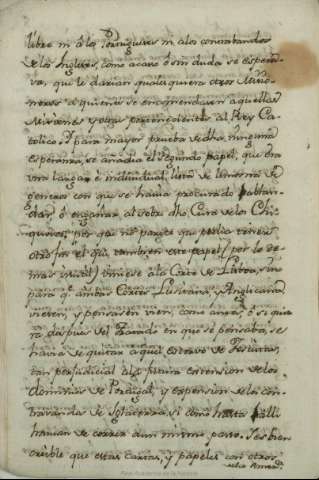 libre ni á los Portugueses ni a los contrabandos
de los Ingleses, como acaso ó sin duda se espera-
va, que le darian qualesquiera otros Misio-
neros a quienes se encomendasen aquellas
Misiones y otras pertenecientes al Rey Ca-
tolico. Y para mayor prueba de dha. ninguna
esperanza, se añadia el segundo papel, que era
una larga é individual lista de
generos con que se havia procurado
ó engañar al sobre dho. Cura de los Chi-
quitos; por que no parece que podia tener
otro fin el que tambien este papel (por lo de-
mas inutil) viniese á la Corte de Lisboa, sino
para que ambas Cortes Lusitana, y Anglicana
viesen, y pensasen vien, como antes, ó si quie-
ra despues del Tratado en que se pensaba, se
havia de quitar aquel estorvo de Jesuitas,
tan perjudicial a la futura extension de los
dominios de Portugal, y expension de los con-
travandos de Inglaterra, si como hasta alli
havian de correr a un mismo paso. Y es bien
creible que estas cartas, y papeles con otros